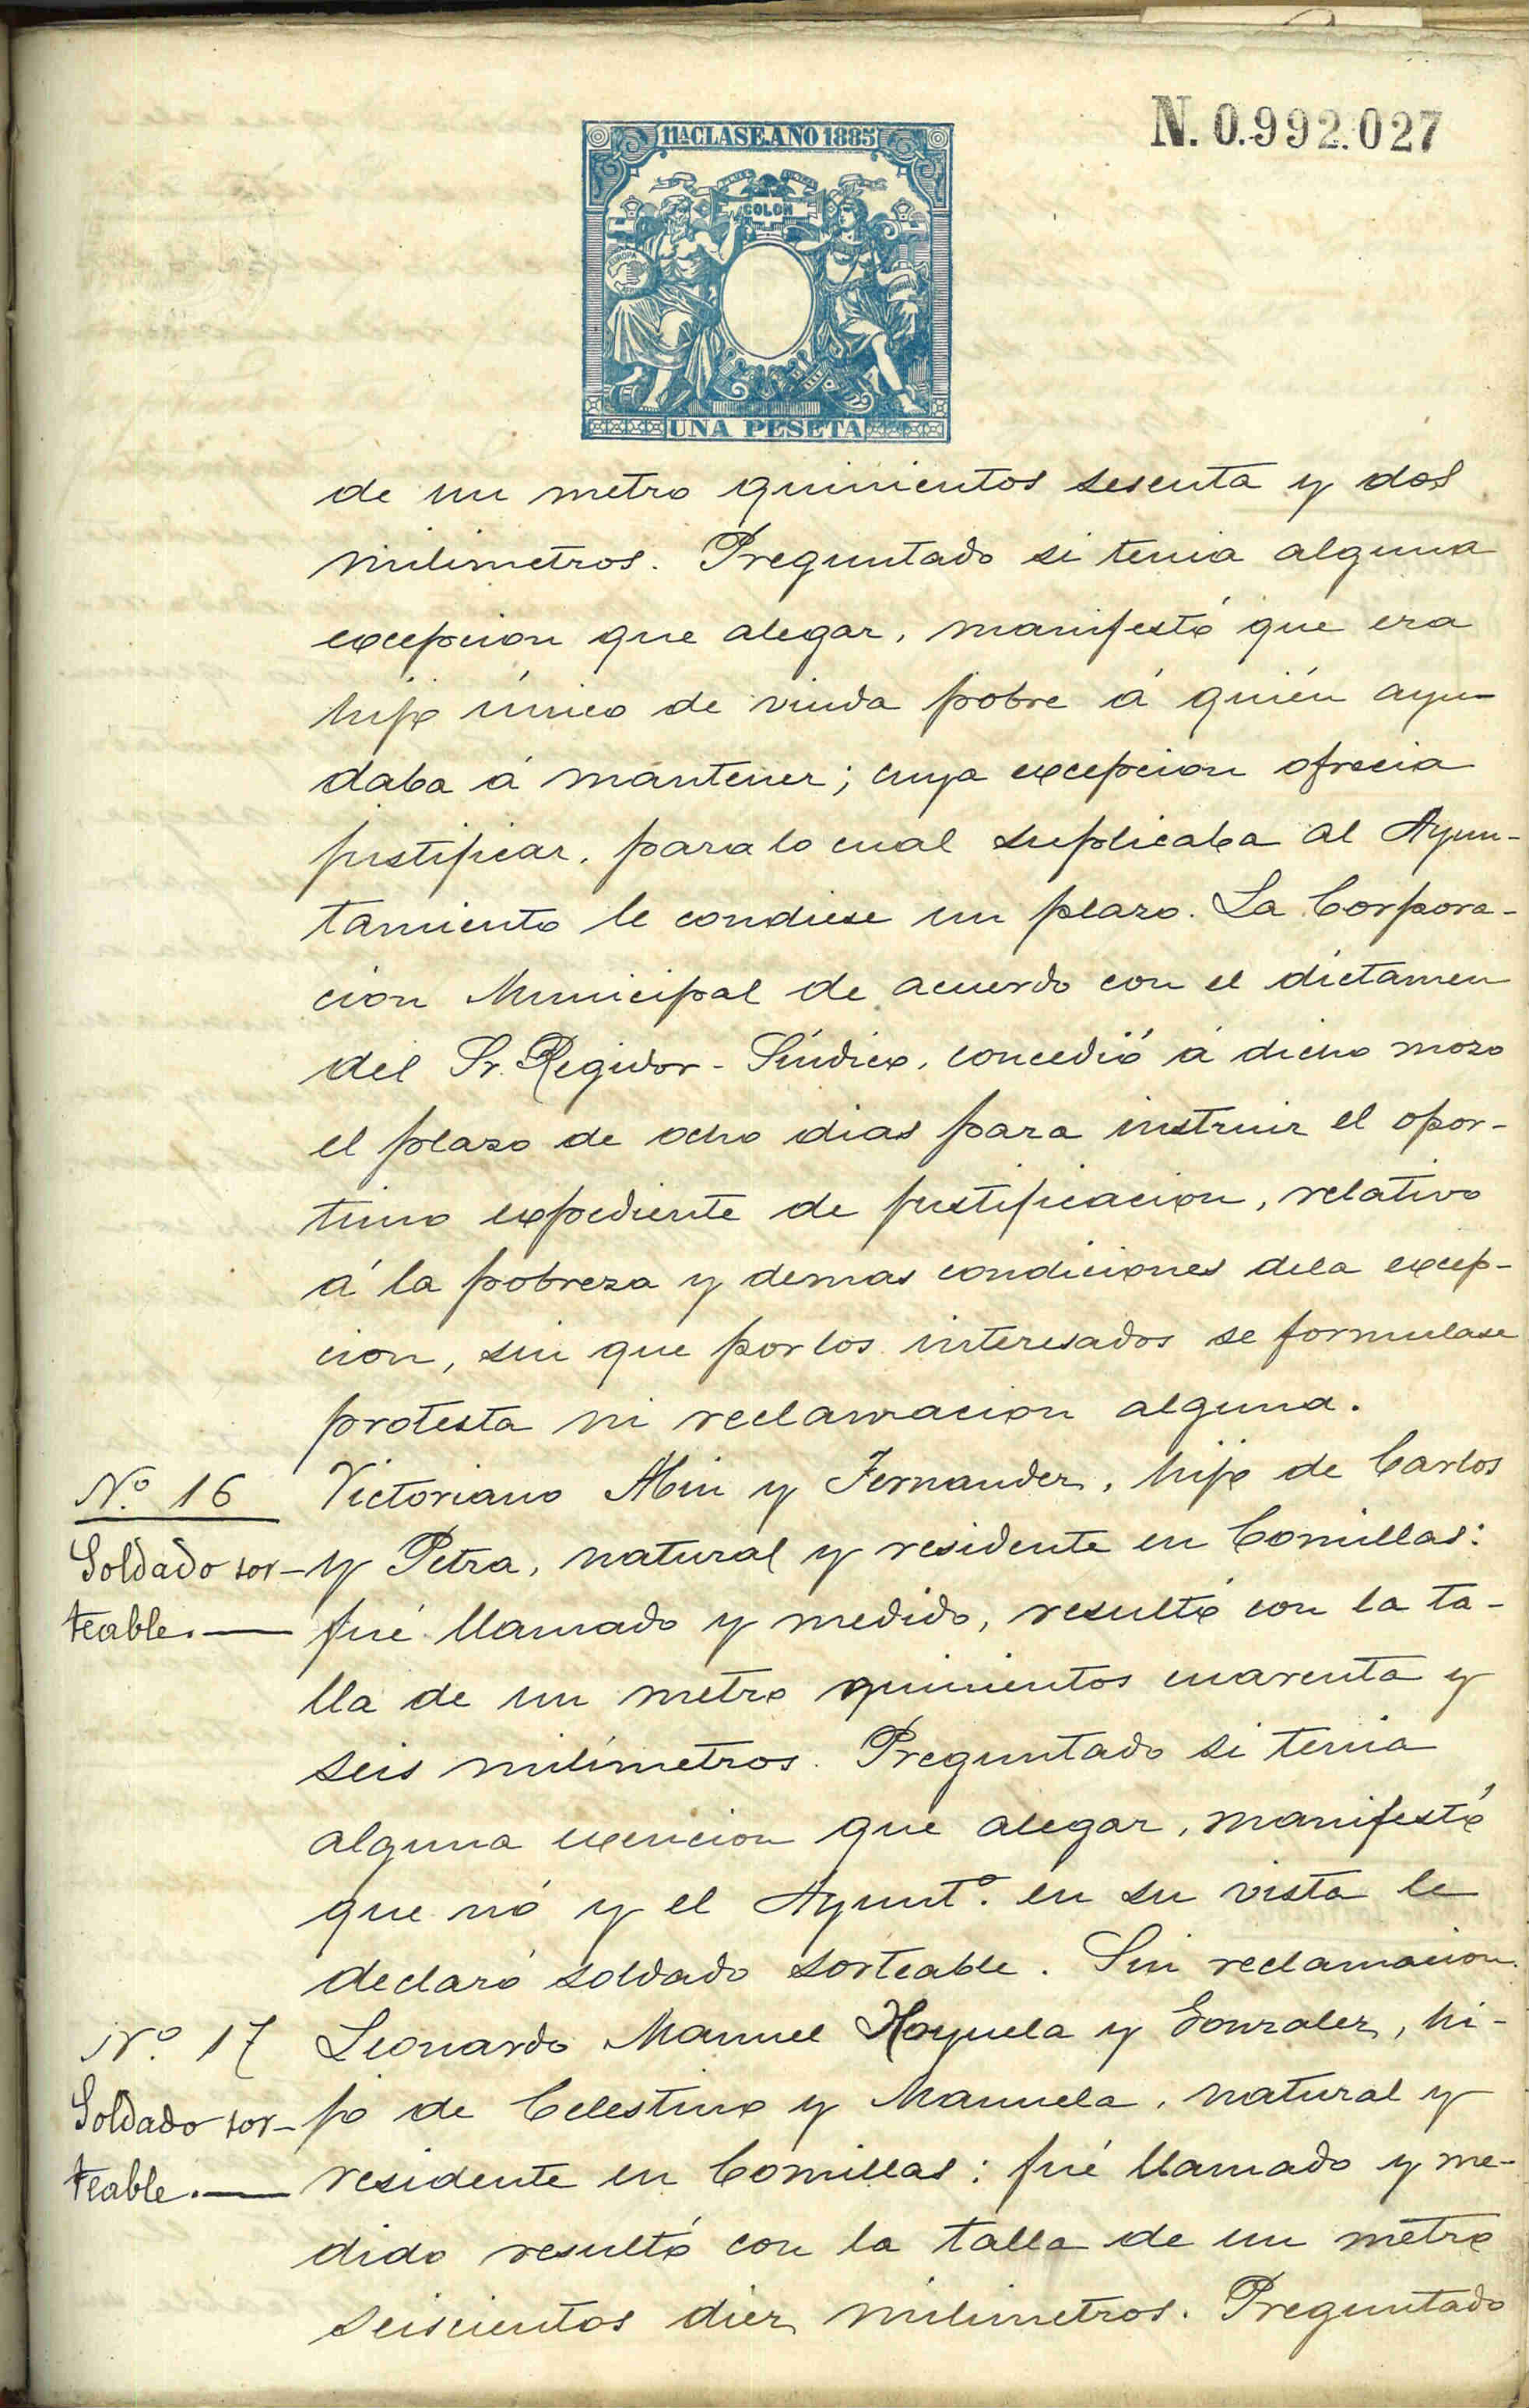 N. 0.992.027
11ª CLASE. AÑO 1885
COLON
EUROPA
UNA PESETA
de un metro quinientos sesenta y dos
milimetros. Preguntado si tenia alguna
excepcion que alegar, manifestó que era
hijo único de viuda pobre á quién ayu-
daba á mantener; cuya excepcion ofrecia
justificar, para lo cual suplicaba al Ayun-
tamiento le condiese un plazo. La Corpora-
cion Municipal de acuerdo con el dictamen
del Sr. Regidor-Síndico, concedió á dicho mozo
el plazo de ocho dias para instruir el opor-
tuno expediente de justificacion, relativo
á la pobreza y demas condiciones dela excep-
cion, sin que por los interesados se formulase
protesta ni reclamacion alguna.
Nº. 16 Victoriano Abin y Fernandez, hijo de Carlos
Soldado sor- y Petra, natural y residente en Comillas:
teable.— fué llamado y medido, resultó con la ta-
lla de un metro quinientos cuarenta y
seis milímetros. Preguntado si tenia
alguna exencion que alegar, manifestó
que nó y el Ayuntº. en su vista le
declaró soldado sorteable. Sin reclamacion.
Nº. 17 Leonardo Manuel Hoyuela y Gonzalez, hi-
Soldado sor- jo de Celestino y Manuela, natural y
teable.— residente en Comillas: fué llamado y me-
dido resultó con la talla de un metro
seiscientos diez milimetros. Preguntado